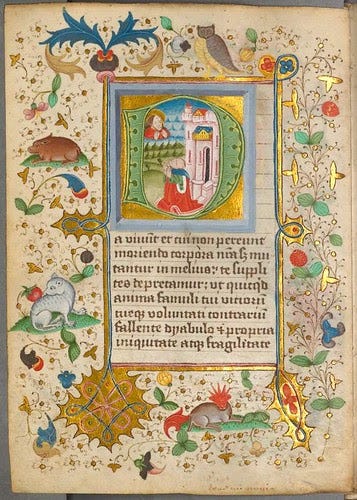 D
a viuūt et cui non pereunt
moriendo corpora nr̄a s; mu
tantur in melius; te suppli
tes deprecamur; ut quicqd
anima famuli tui uitiorū
tueq; voluntati contrariū
fallente dyabulo & propria
iniquitate atq; fragilitate